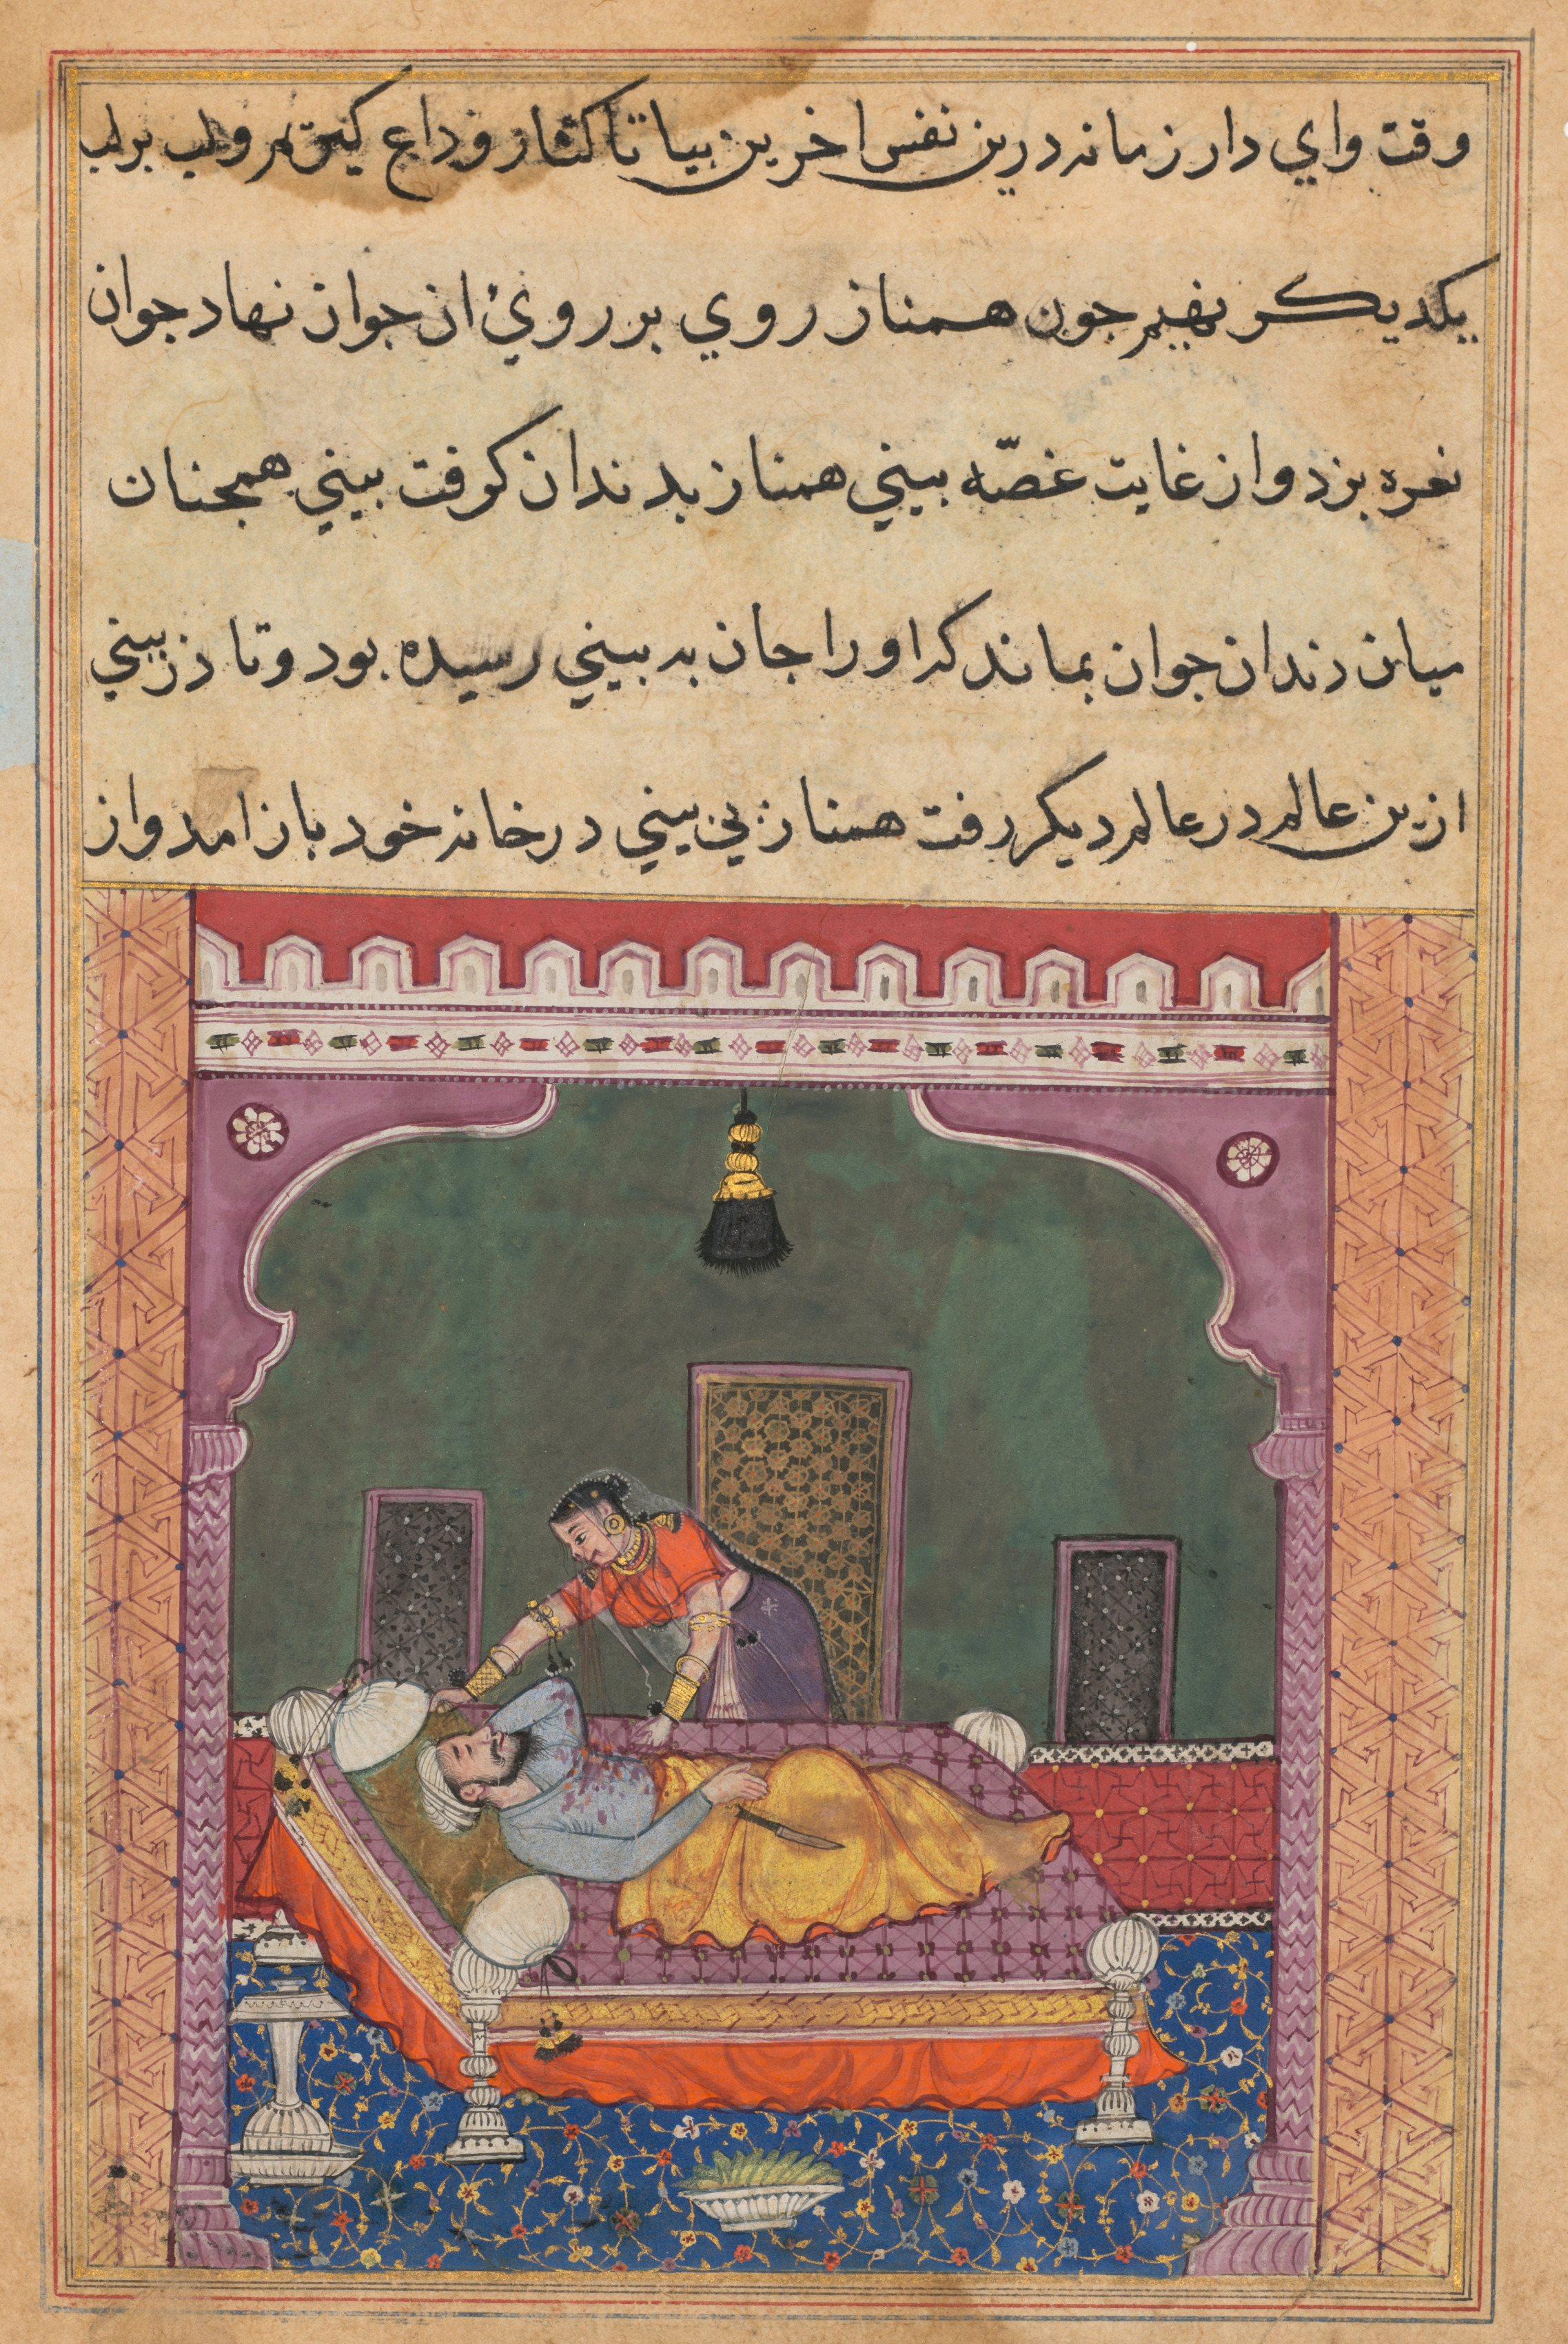 وقت واي دار زمانه درين نفس اخرين بيا تا كنار وداع كيريم و لب برلب
يكديكر نهيم جون همناز روي بر روئ ان جوان نهاد جوان
نعره بزد و از غايت غصّه بيني همناز بدندان كرفت بيني همجنان
ميان دندان جوان بماند كه او را جان به بيني رسيده بود و تا در بيني
ازين عالم در عالم ديكر رفت همناز بي بيني در خانه خود باز امد و از